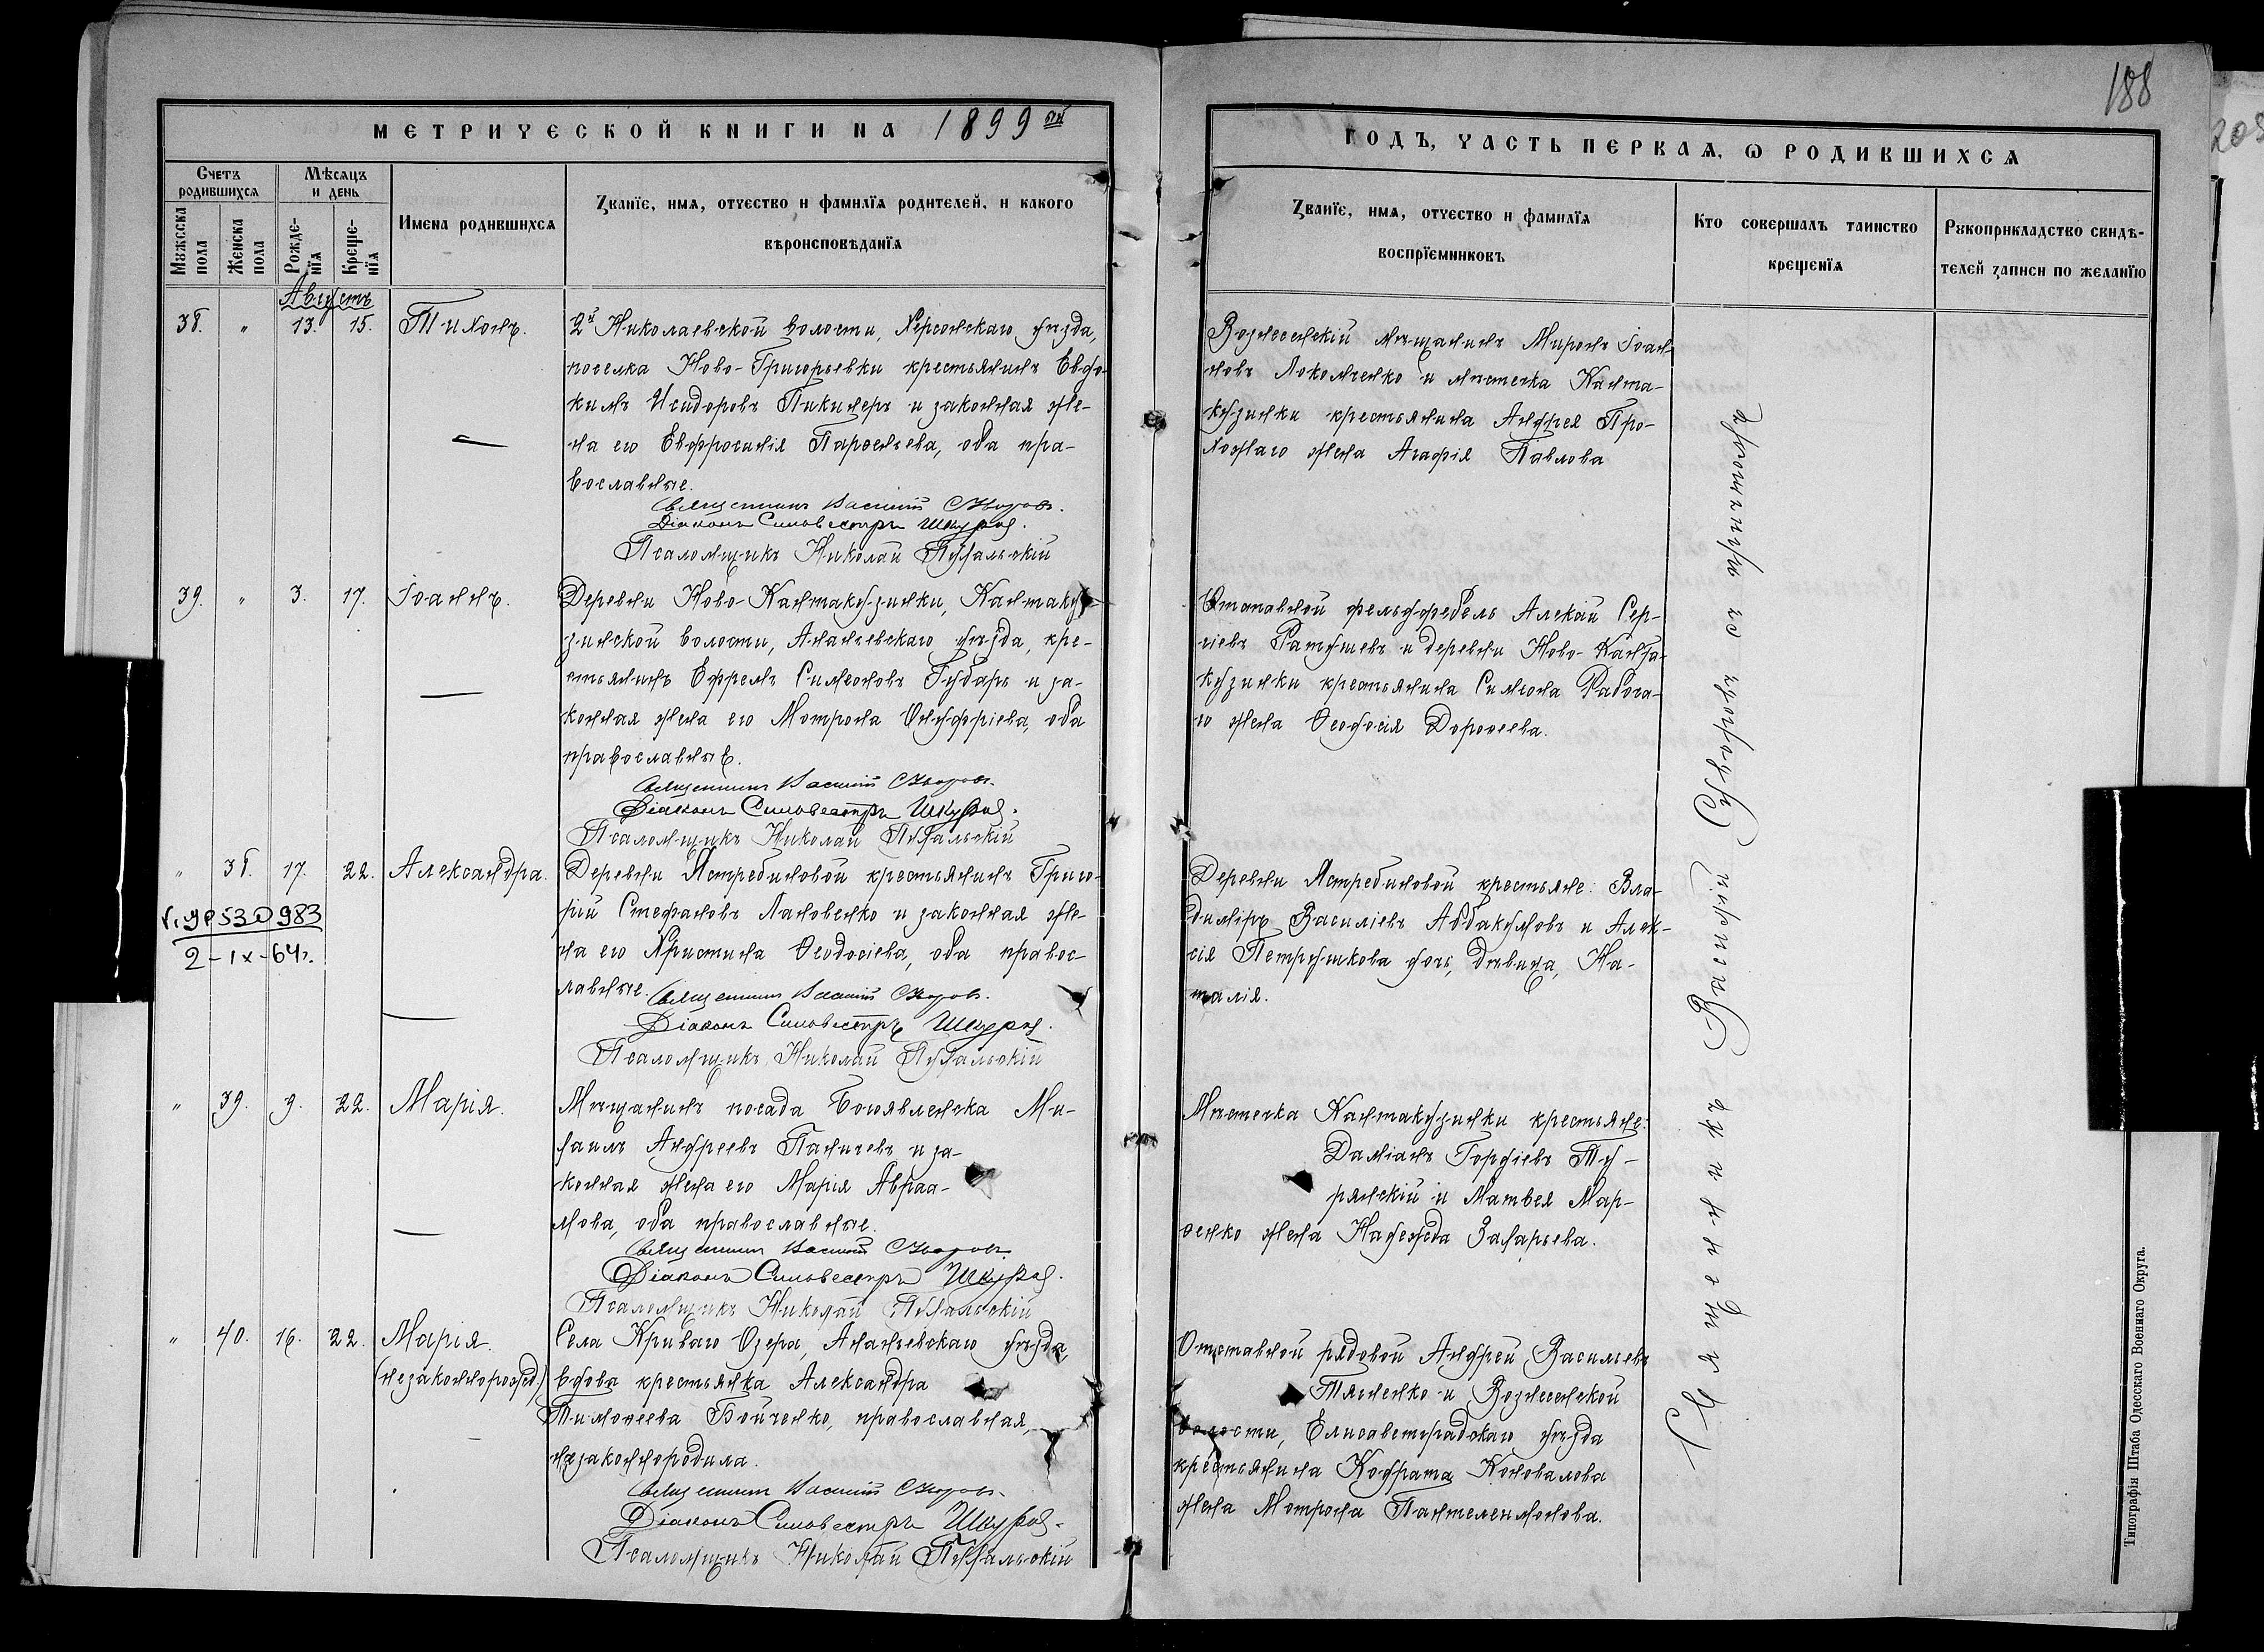 188
МЕТРИЧЕСКОЙ КНИГИ НА 1899ый
ГОДЪ, ЧАСТЬ ПЕРВАЯ, Ѡ РОДИВШИХСЯ
Счетъ родившихся
Мѣсяцъ и день
Мужеска пола
Женска пола
Рожде-нїя
Креще-нїя
Имена родившихся
Званїе, имя, отчество и фамилїя родителей, и какого
вѣроисповѣданїя
Званїе, имя, отчество и фамилїя
воспрїемниковъ
Кто совершалъ таинство
крещенїя
Рукоприкладство свидѣ-
телей записи по желанїю
Августъ
38. " 13. 15. Тихонъ.
2й Николаевской волости, Херсонскаго уѣзда,
поселка Ново-Григорьевки крестьянинъ Евдо-
кимъ Исидоровъ Пикинеръ и законная же-
на его Евфросинія Парѳеньева, оба пра-
вославные.
Священникъ Василій
Діаконъ Сильвестръ
Псаломщикъ Николай
Вознесенскій мѣщанинъ Миронъ Іоан-
новъ и мѣстечкаКанта-
кузинки крестьянина Андрея Про-
хожаго жена Агафія Павлова
39. " 3. 17. Іоаннъ.
Деревни Ново-Кантакузинки, Кантаку-
зинской волости, Ананьевскаго уѣзда, кре-
стьянинъ Ефремъ Симеоновъ Губарь и за-
конная жена его Мотрона Онуфріева, оба
православные.
Священникъ Василій
Діаконъ Сильвестръ
Псаломщикъ Николай
Отставной фельдфебель Алексѣй Сер-
гіевъ Ратушевъ и деревни Ново-Канта-
кузинки крестьянина Симеона Рабога-
го жена Ѳеодосія Дороѳеева.
" 38. 17. 22. Александра.
530983
2-IX-64г.
Деревни Ястребиновой крестьянинъ Григо-
рій Стефановъ Лановенко и законная же-
на его Христина Ѳеодосіева, оба правос-
лавные.
Священникъ Василій
Діаконъ Сильвестръ
Псаломщикъ Николай
Деревни Ястребиновой крестьяне: Вла-
диміръ Василіевъ Аббакумовъ и Алек-
сія Петрушкова дочь, дѣвица, На-
талія.
" 39. 9. 22. Марія.
Мѣщанинъ посада Богоявленска Ми-
хаилъ Андреевъ Паничевъ и за-
конная жена его Марія Авраа-
мова, оба православные.
Священникъ Василій
Діаконъ Сильвестръ
Псаломщикъ Николай
Мѣстечка Кантакузинки крестьяне:
Даміанъ Гордіевъ Ту-
рянскій и Матвея Мар-
ѳенко жена Надежда Захарьева.
" 40. 16. 22. Марія.
(незаконнорожд.)
Села Криваго Озера, Ананьевскаго уѣзда,
вдова крестьянка Александра
Тимоѳеева Бойченко, православная,
незаконнородила.
Священникъ Василій
Діаконъ Сильвестръ
Псаломщикъ Николай
Отставной рядовой Андрей Васильевъ
Тяненко и Вознесенской
волости, Елисаветградскаго уѣзда
крестьянина Кодрата Коновалова
жена Мотрона Пантелеимонова.
Священникъ Василій
Типографія Штаба Одесскаго Военнаго Округа.